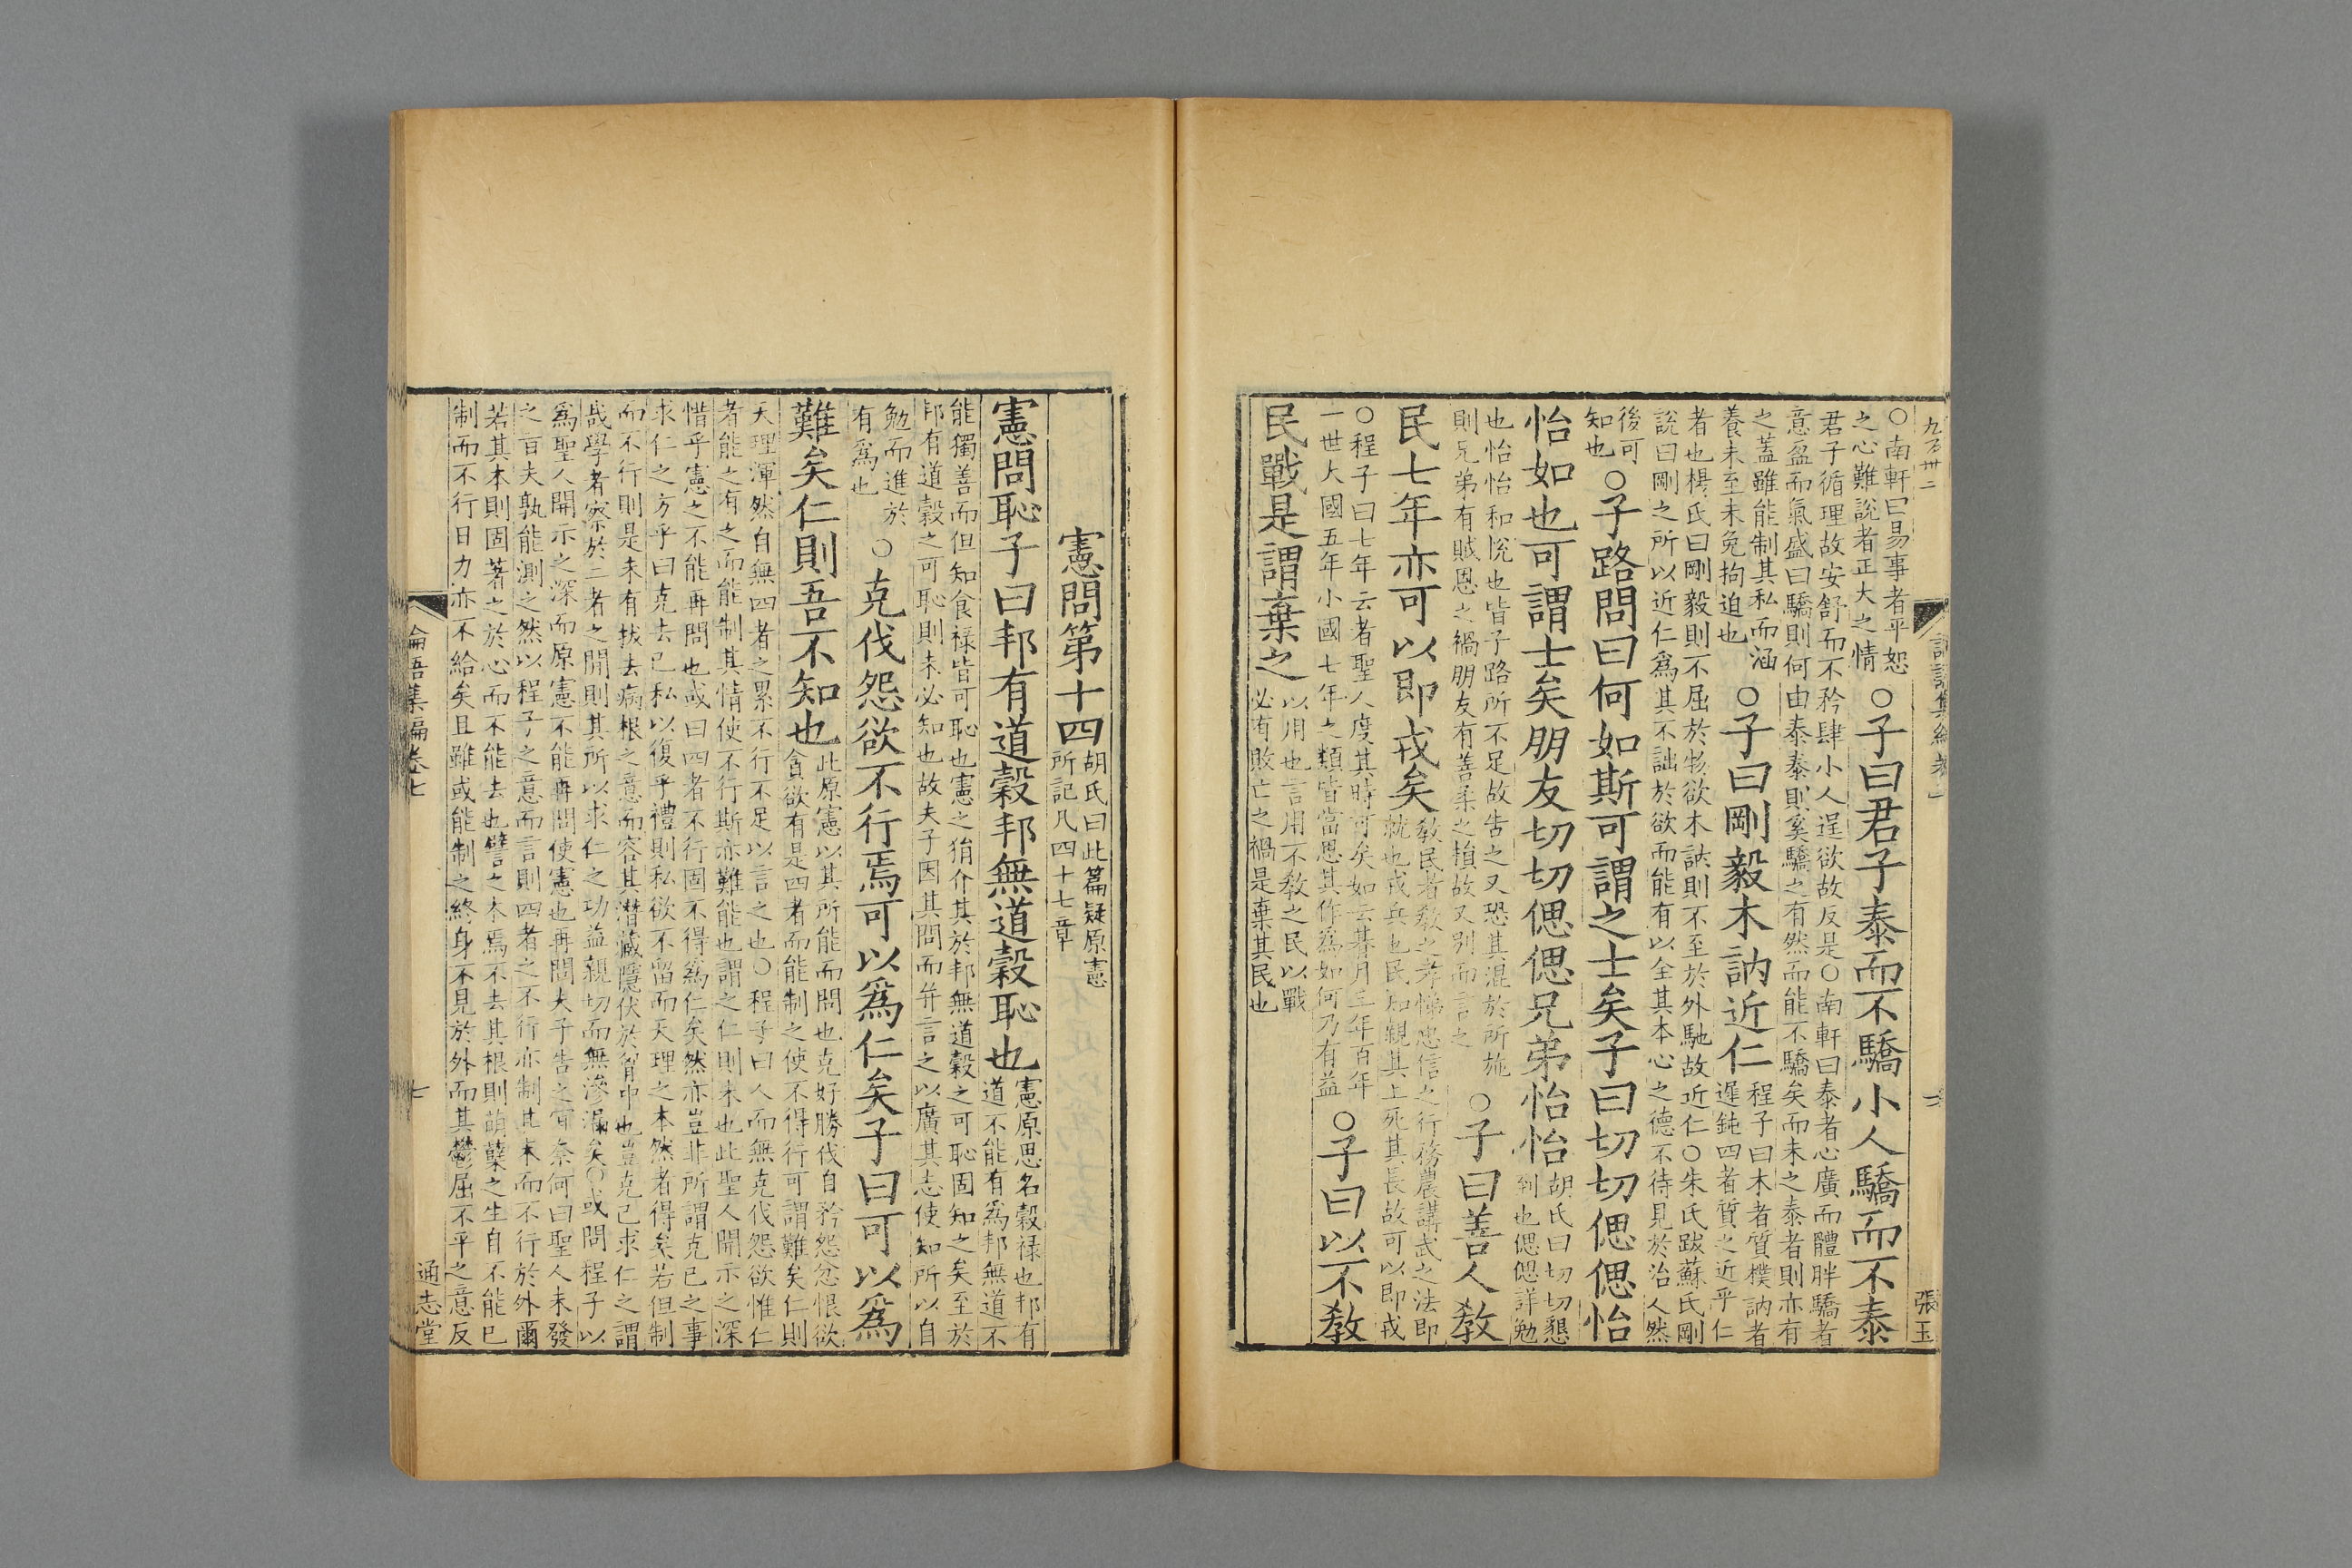 九百卅二
張玉
○南軒曰易事者平恕
之心難說者正大之情
○子曰君子泰而不驕小人驕而不泰
君子循理故安舒而不矜肆小人逞欲故反是○南軒曰泰者心廣而體胖驕者
意盈而氣盛曰驕則何由泰泰則奚驕之有然而能不驕矣而未之泰者則亦有
之蓋雖能制其私而涵
養未至未免拘迫也
○子曰剛毅木訥近仁
程子曰木者質樸訥者
遲鈍四者質之近乎仁
者也楊氏曰剛毅則不屈於物欲木訥則不至於外馳故近仁○朱氏跋蘇氏剛
說曰剛之所以近仁爲其不詘於欲而能有以全其本心之德不待見於治人然
後可
知也
○子路問曰何如斯可謂之士矣子曰切切偲偲怡
怡如也可謂士矣朋友切切偲偲兄弟怡怡
胡氏曰切切懇
到也偲偲詳勉
也怡怡和悅也皆子路所不足故告之又恐其混於所施
則兄弟有賊恩之禍朋友有善柔之損故又別而言之
○子曰善人教
民七年亦可以即戎矣
教民者教之孝悌忠信之行務農講武之法即
就也戎兵也民知親其上死其長故可以即戎
○程子曰七年云者聖人度其時可矣如云朞月三年百年
一世大國五年小國七年之類皆當思其作爲如何乃有益
○子曰以不教
民戰是謂棄之
以用也言用不教之民以戰
必有敗亡之禍是棄其民也
憲問第十四
胡氏曰此篇疑原憲
所記凡四十七章
憲問恥子曰邦有道穀邦無道穀恥也
憲原思名穀祿也邦有
道不能有爲邦無道不
能獨善而但知食祿皆可恥也憲之狷介其於邦無道穀之可恥固知之矣至於
邦有道穀之可恥則未必知也故夫子因其問而并言之以廣其志使知所以自
勉而進於
有爲也
○克伐怨欲不行焉可以爲仁矣子曰可以爲
難矣仁則吾不知也
此原憲以其所能而問也克好勝伐自矜怨忿恨欲
貪欲有是四者而能制之使不得行可謂難矣仁則
天理渾然自無四者之累不行不足以言之也○程子曰人而無克伐怨欲惟仁
者能之有之而能制其情使不行斯亦難能也謂之仁則未也此聖人開示之深
惜乎憲之不能再問也或曰四者不行固不得爲仁矣然亦豈非所謂克己之事
求仁之方乎曰克去己私以復乎禮則私欲不留而天理之本然者得矣若但制
而不行則是未有拔去病根之意而容其潛藏隱伏於胷中也豈克己求仁之謂
哉學者察於二者之閒則其所以求仁之功益親切而無滲漏矣○或問程子以
爲聖人開示之深而原憲不能再問使憲也再問夫子告之宜柰何曰聖人未發
之百夫孰能測之然以程子之意而言則四者之不行亦制其末而不行於外爾
若其本則固著之於心而不能去也譬之木焉不去其根則萌蘖之生自不能已
制而不行日力亦不給矣且雖或能制之終身不見於外而其鬱屈不平之意反
論語集編卷七
七
通志堂